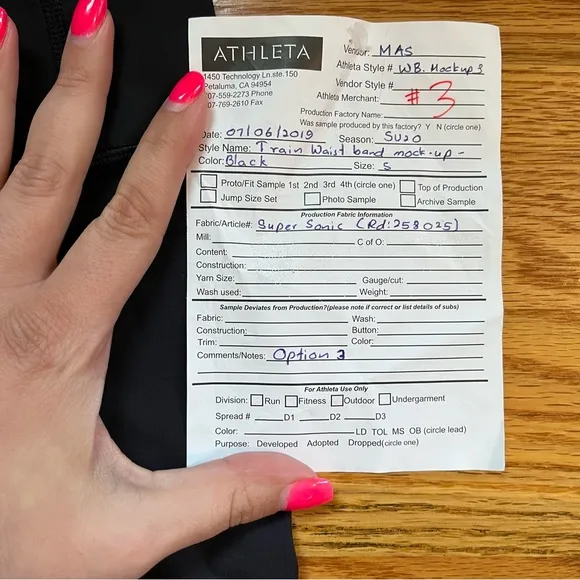 ATHLETA
1450 Technology Ln.ste.150
Petaluma, CA 94954
707-559-2273 Phone
707-769-2610 Fax
Vendor: MAS
Athleta Style # WB. Mockup 3
Vendor Style #
Athleta Merchant:
#3
Production Factory Name:
Was sample produced by this factory? Y N (circle one)
Date: 07/06/2019 Season: SU20
Style Name: Train Waist band mock-up -
Color: Black Size: S
Proto/Fit Sample 1st 2nd 3rd 4th (circle one) Top of Production
Jump Size Set Photo Sample Archive Sample
Production Fabric Information
Fabric/Article#: Super Sonic (Rd:258025)
Mill: C of O:
Content:
Construction:
Yarn Size: Gauge/cut:
Wash used: Weight:
Sample Deviates from Production?(please note if correct or list details of subs)
Fabric: Wash:
Construction: Button:
Trim: Color:
Comments/Notes: Option 3
For Athleta Use Only
Division: Run Fitness Outdoor Undergarment
Spread # D1 D2 D3
Color: LD TOL MS OB (circle lead)
Purpose: Developed Adopted Dropped(circle one)